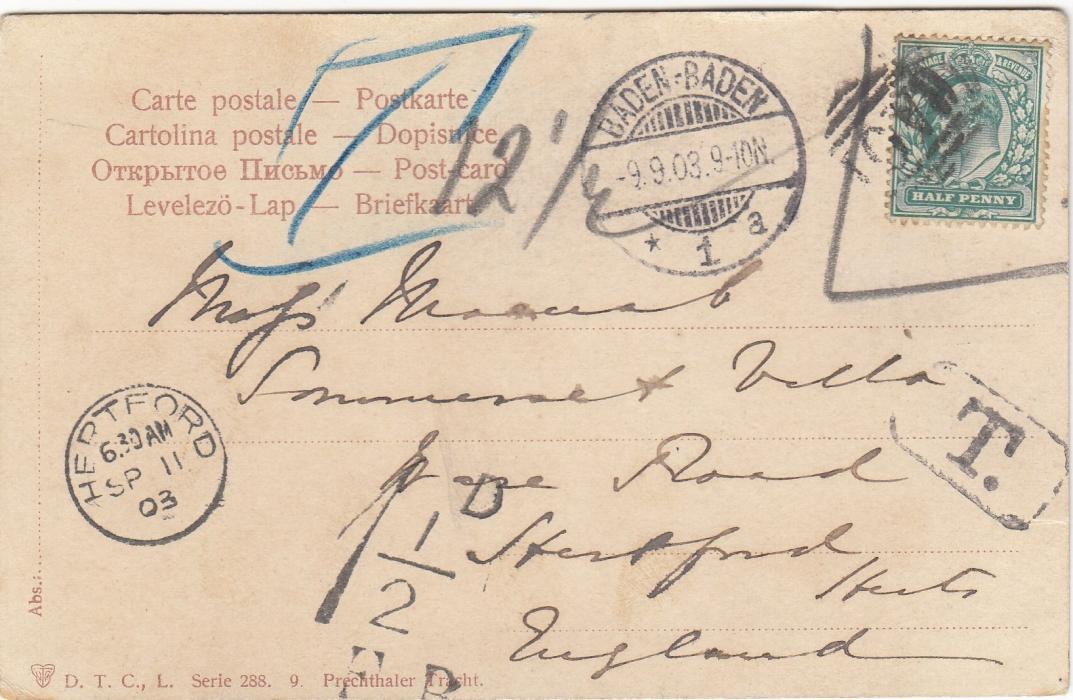 Carte postale — Postkarte
Cartolina postale — Dopisnice
Открытое Письмо — Post-card
Levelezö-Lap — Briefkaart
12 1/2
BADEN-BADEN
-9.9.03.9-10N.
* 1 a
POSTAGE & REVENUE
HALF PENNY
Miss
Sommerset Villa
Road
Hertford
Herts
England
T.
HERTFORD
6.30 AM
SP 11
03
1/2 D
F.B
Abs.:
D. T. C., L. Serie 288. 9. Prechthaler Tracht.